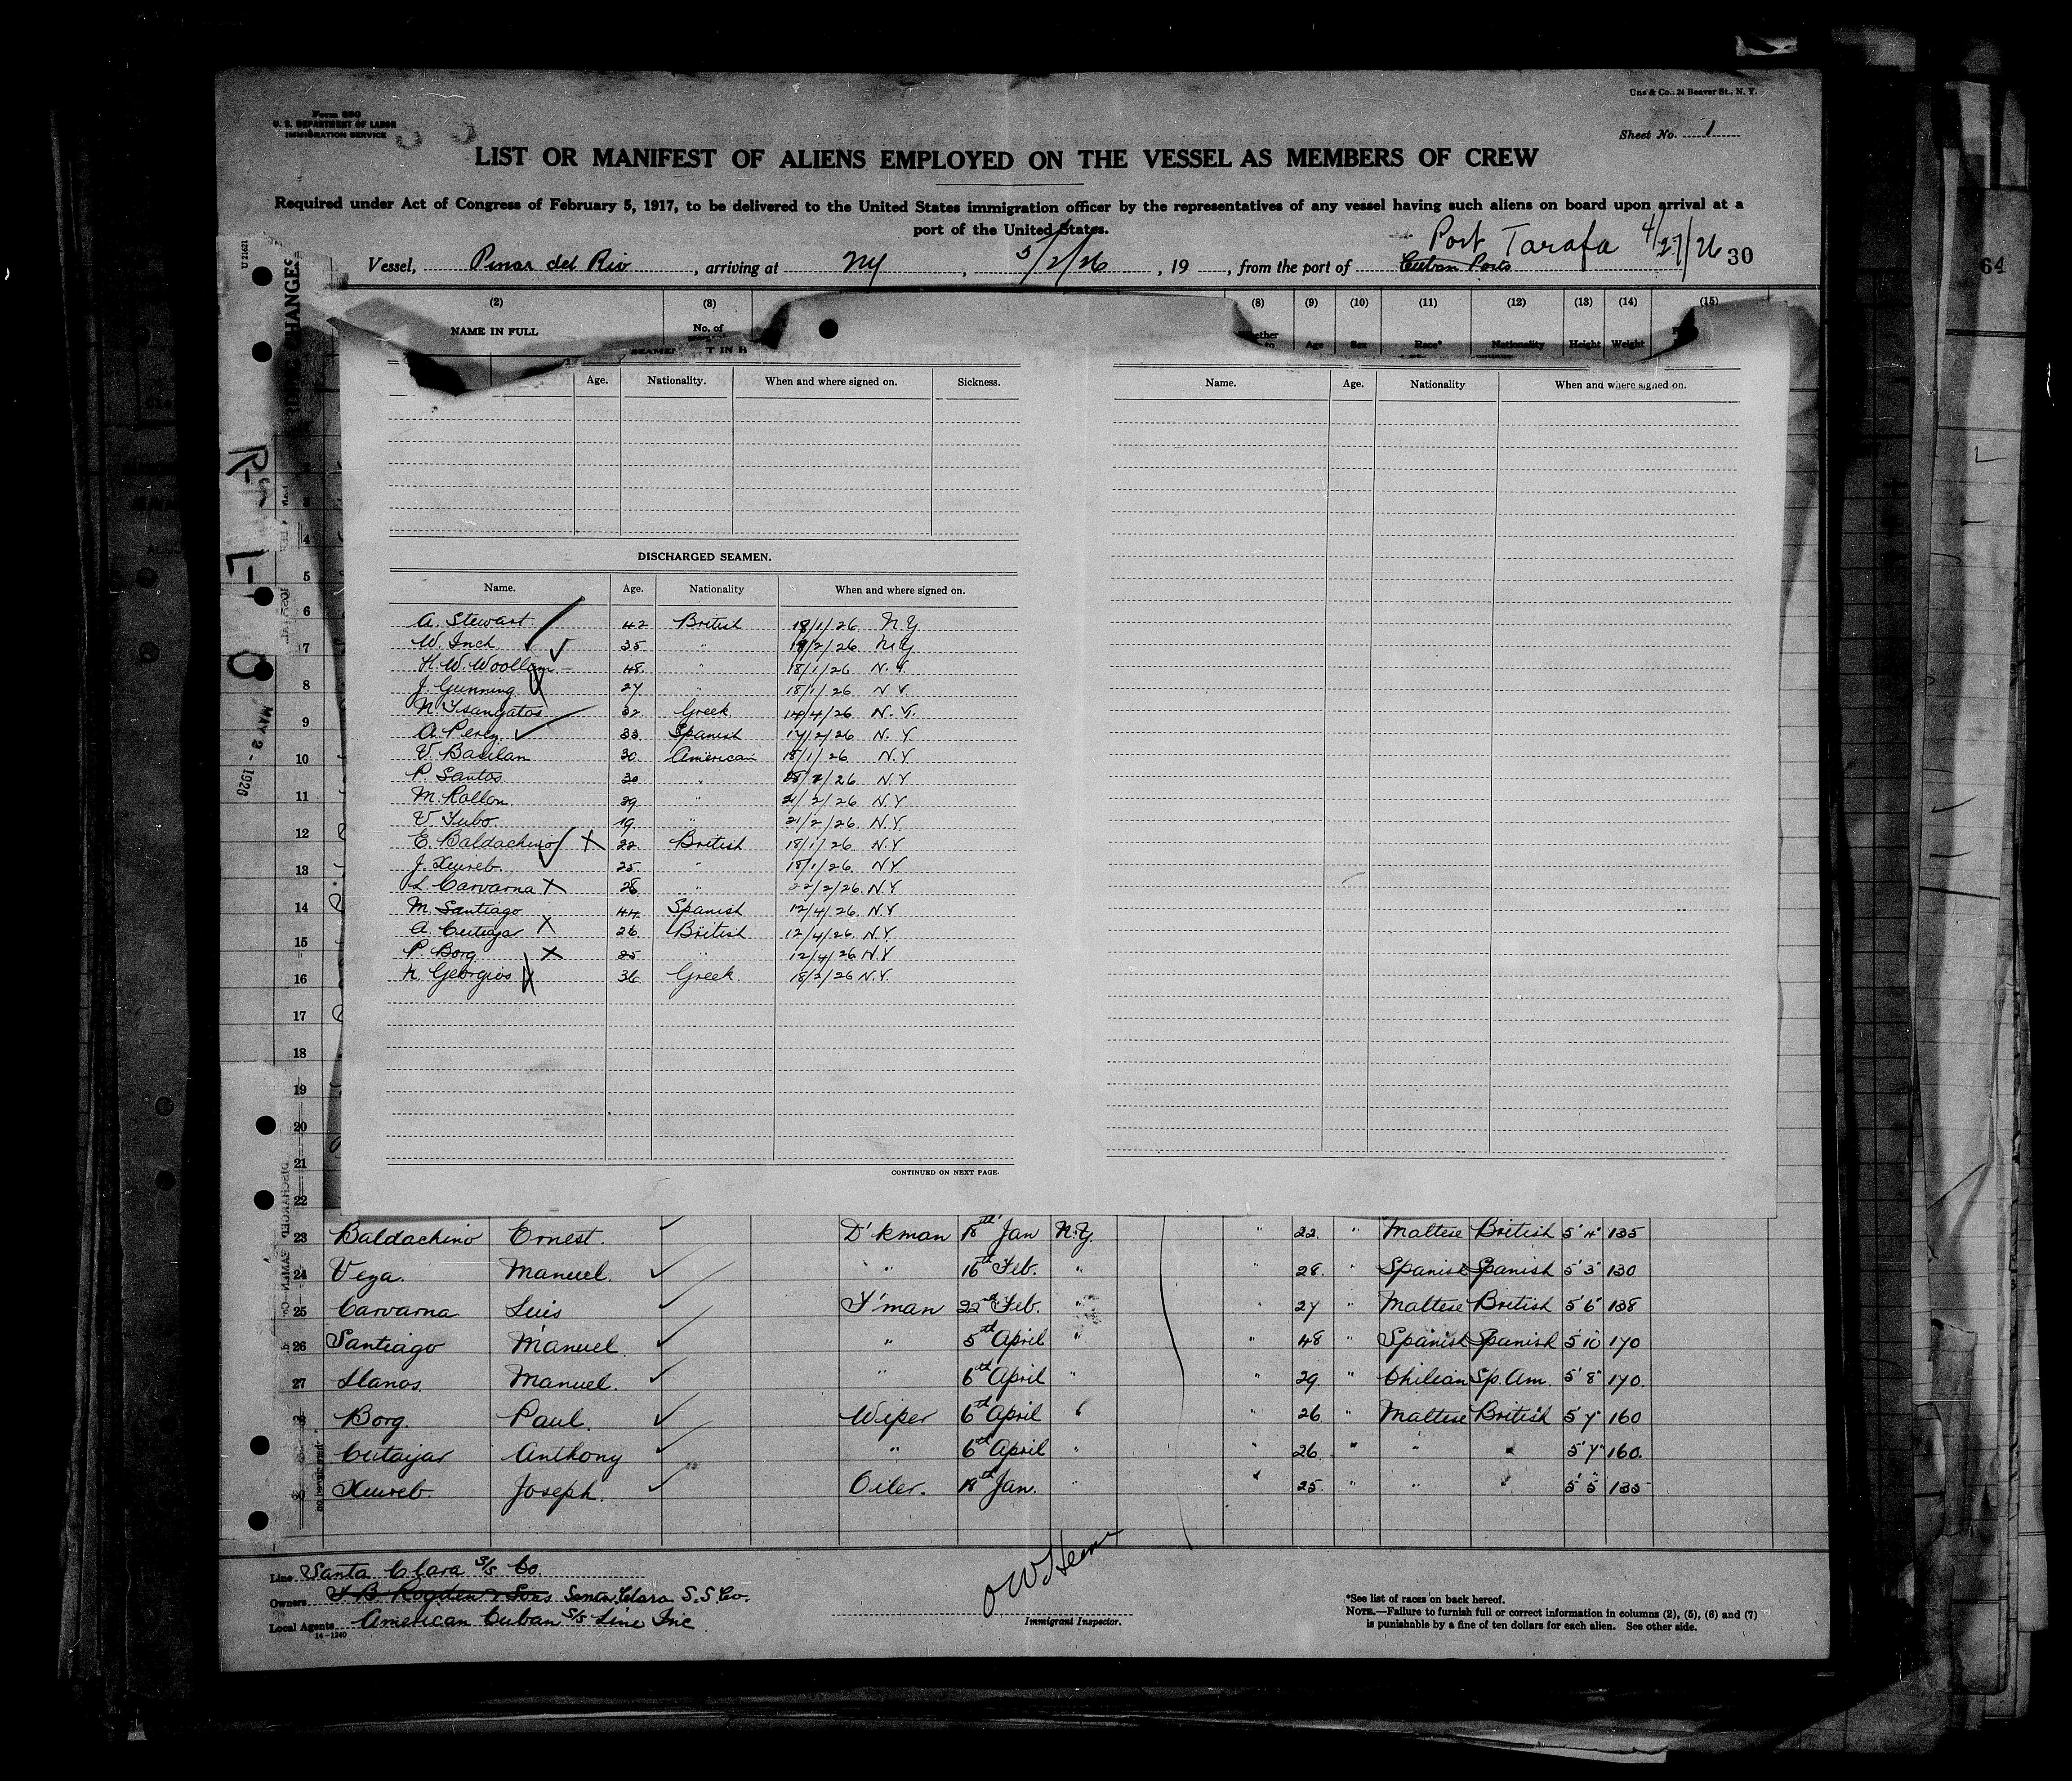 Uns & Co., 24 Beaver St., N. Y.
Form 680
U. S. DEPARTMENT OF LABOR
IMMIGRATION SERVICE
Sheet No. 1
LIST OR MANIFEST OF ALIENS EMPLOYED ON THE VESSEL AS MEMBERS OF CREW
Required under Act of Congress of February 5, 1917, to be delivered to the United States immigration officer by the representatives of any vessel having such aliens on board upon arrival at a
port of the United States.
Port Tarafa 4/27/26
Vessel, Pinar del Rio, arriving at NY, 5/2/26, 19, from the port of Cuban Ports 30
64
U 21621
(2) (3) (8) (9) (10) (11) (12) (13) (14) (15)
NAME IN FULL No. of Age Sex Race* Nationality Height Weight
Age. Nationality. When and where signed on. Sickness.
Name. Age. Nationality When and where signed on.
DISCHARGED SEAMEN.
Name. Age. Nationality When and where signed on.
A. Stewart 42 British 18/1/26 NY
W. Inch 35 " 18/2/26 NY
H. W. Woollam 48 " 18/1/26 N.Y.
J. Gunning 27 " 18/1/26 N.Y.
N. Tsangatos 32 Greek 14/4/26 N.Y.
A. Perez 33 Spanish 17/2/26 N.Y
V. Basilan 30 American 18/1/26 N.Y
P. Santos 30 " /26 N.Y
M. Rollon 29 " 21/2/26 N.Y
V. Tubo 19 " 21/2/26 N.Y.
E. Baldachino X 22 British 18/1/26 N.Y
J. Xuereb 25 " 18/1/26 NY
L. Carvarna X 28 " 22/2/26 N.Y
M. Santiago 44 Spanish 12/4/26 N.Y
A. Cutajar X 26 British 12/4/26 N.Y.
P. Borg X 25 " 12/4/26 N.Y
N. Georgios 36 Greek 18/2/26 N.Y.
CONTINUED ON NEXT PAGE.
MAY 2 - 1926
4
5
6
7
8
9
10
11
12
13
14
15
16
17
18
19
20
21
22
23 Baldachino Ernest. D'kman 18th Jan N.Y. " 22. " Maltese British 5'4" 135
24 Vega. Manuel. " 16th Feb. " " 28. " Spanish Spanish 5'3" 130
25 Carvarna Luis F'man 22nd Feb. " " 27 " Maltese British 5'6" 138
26 Santiago Manuel. " 5th April " " 48 " Spanish Spanish 5'10" 170
27 Llanos. Manuel. " 6th April " " 29. " Chilean Sp. Am. 5'8" 170.
28 Borg. Paul. Wiper 6th April " " 26 " Maltese British 5'7" 160
Cutajar Anthony " 6th April " " 26. " " " 5'7" 160.
30 Xuereb. Joseph. Oiler. 18th Jan. " " 25. " " " 5'5" 135
Line Santa Clara S/S Co.
Owners Santa Clara S.S Co.
Local Agents American Cuban S/S Line Inc
14-1240
Immigrant Inspector.
*See list of races on back hereof.
NOTE.—Failure to furnish full or correct information in columns (2), (5), (6) and (7)
is punishable by a fine of ten dollars for each alien. See other side.